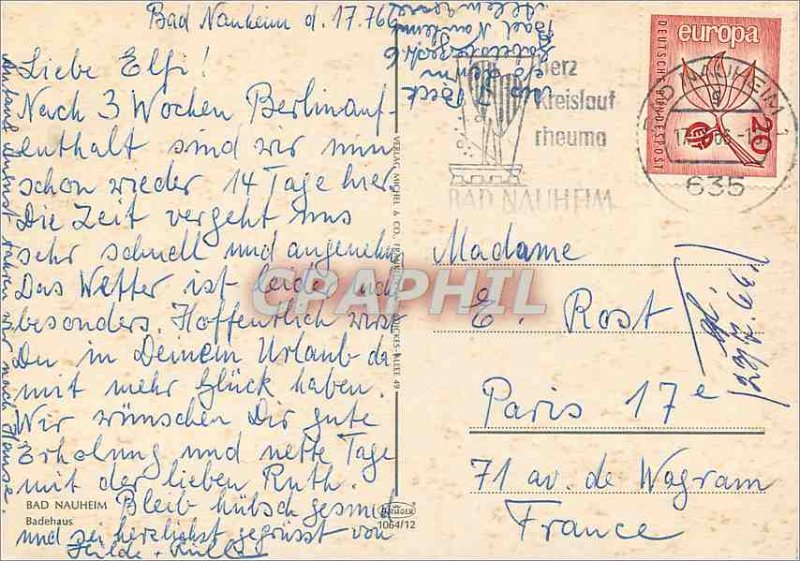 Bad Nauheim d. 17.7.66
Liebe Elfi!
Nach 3 Wochen Berlinauf-
enthalt sind wir nun
schon wieder 14 Tage hier.
Die Zeit vergeht uns
sehr schnell und angenehm
Das Wetter ist leider nicht
besonders. Hoffentlich wirst
Du in Deinem Urlaub da
mit mehr Glück haben.
Wir wünschen Dir gute
Erholung und nette Tage
mit der lieben Ruth.
Bleib hübsch gesund
und sei herzlichst gegrüsst von
Hilde +
Anfang August fahren wir nach Hause.
BAD NAUHEIM
Badehaus
1064/12
VERLAG MICHEL & CO., FRANKFURT
ALLEE 49
Bad Nauheim
Herz
Kreislauf
rheuma
BAD NAUHEIM
europa
DEUTSCHE BUNDESPOST
20
BAD NAUHEIM 1
635
Madame
E. Rost
Paris 17e
71 av. de Wagram
France
23/7.66
CPAPHIL